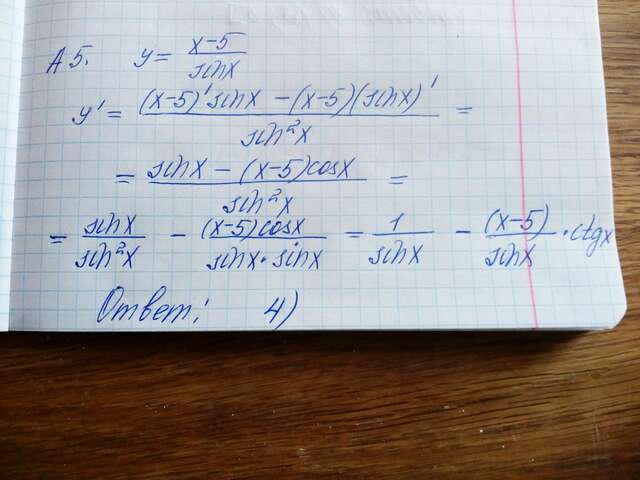 А5. y = (x-5)/sinx
y' = ((x-5)'sinx - (x-5)(sinx)')/sin²x =
= (sinx - (x-5)cosx)/sin²x =
= sinx/sin²x - (x-5)cosx/(sinx·sinx) = 1/sinx - (x-5)/sinx · ctgx
Ответ: 4)